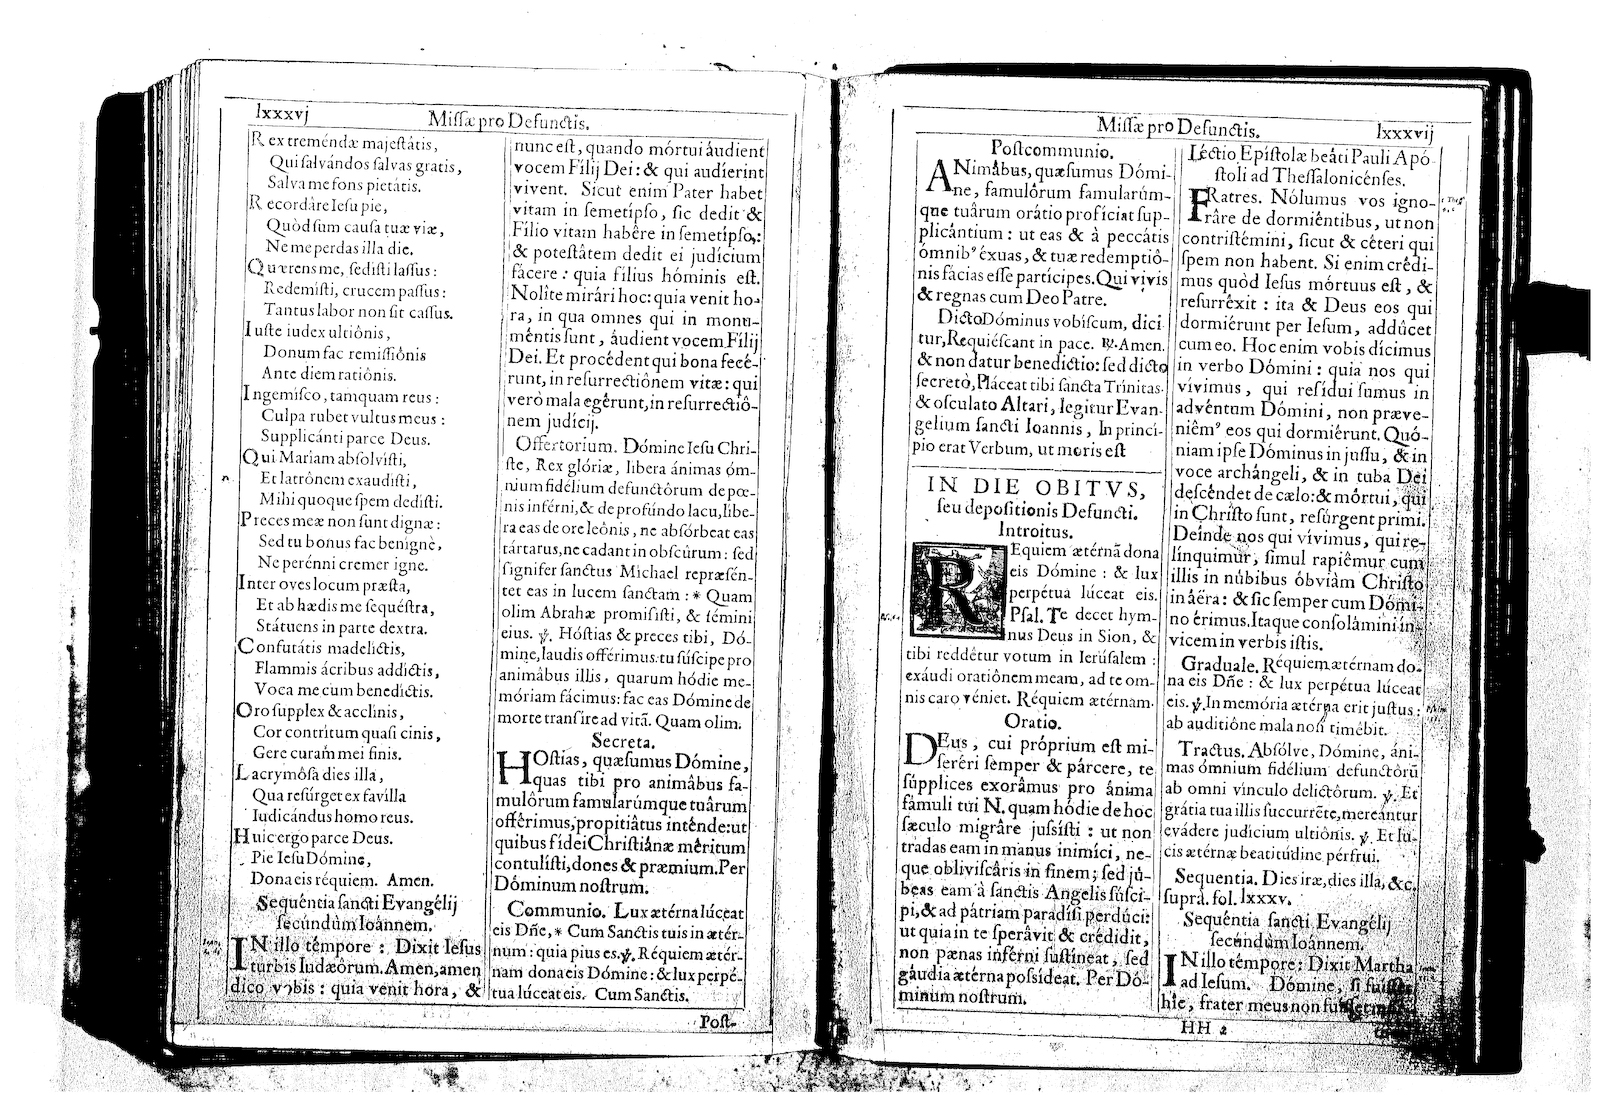 lxxxvj
Missæ pro Defunctis.
Rex treméndæ majestâtis,
Qui salvándos salvas gratis,
Salva me fons pietátis.
Recordâre Iesu pie,
Quòd sum causa tuæ viæ,
Ne me perdas illa die.
Quærens me, sedisti lassus:
Redemisti, crucem passus:
Tantus labor non sit cassus.
Iuste iudex ultiônis,
Donum fac remissiônis
Ante diem ratiônis.
Ingemisco, tamquam reus:
Culpa rubet vultus meus:
Supplicánti parce Deus.
Qui Mariam absolvisti,
Et latrônem exaudisti,
Mihi quoque spem dedisti.
Preces meæ non sunt dignæ:
Sed tu bonus fac benignè,
Ne perénni cremer igne.
Inter oves locum præsta,
Et ab hædis me sequéstra,
Státuens in parte dextra.
Confutátis madelictis,
Flammis ácribus addictis,
Voca me cum benedíctis.
Oro supplex & acclinis,
Cor contritum quasi cinis,
Gere curam mei finis.
Lacrymôsa dies illa,
Qua resúrget ex favilla
Iudicándus homo reus.
Huic ergo parce Deus.
Pie Iesu Dómine,
Dona eis réquiem. Amen.
Sequéntia sancti Evangélij
secúndùm Ioánnem.
IN illo témpore: Dixit Iesus
turbis Iudæôrum. Amen, amen
dico vobis: quia venit hora, &
nunc est, quando mórtui áudient
vocem Fílij Dei: & qui audíerint
vivent. Sicut enim Pater habet
vitam in semetípso, sic dedit &
Fílio vitam habêre in semetípso,:
& potestâtem dedit ei judícium
fácere: quia fílius hóminis est.
Nolîte mirári hoc: quia venit ho-
ra, in qua omnes qui in monu-
méntis sunt, áudient vocem Fílij
Dei. Et procédent qui bona fecé-
runt, in resurrectiônem vitæ: qui
verò mala egérunt, in resurrectiô-
nem judícij.
Offertorium. Dómine Iesu Chri-
ste, Rex glóriæ, libera ánimas óm-
nium fidélium defunctórum de pœ-
nis inférni, & de profúndo lacu, libe-
ra eas de ore leônis, ne absórbeat eas
tártarus, ne cadant in obscúrum: sed
signifer sanctus Michael repræsén-
tet eas in lucem sanctam: * Quam
olim Abrahæ promisisti, & sémini
eius. ℣. Hóstias & preces tibi, Dó-
mine, laudis offérimus: tu súscipe pro
animâbus illis, quarum hódie me-
móriam fácimus: fac eas Dómine de
morte transire ad vitã. Quam olim.
Secreta.
HOstias, quæsumus Dómine,
quas tibi pro animâbus fa-
mulôrum famularúmque tuârum
offérimus, propitiâtus inténde: ut
quibus fídei Christiánæ méritum
contulísti, dones & præmium. Per
Dóminum nostrum.
Communio. Lux ætérna lúceat
eis Dñe, * Cum Sanctis tuis in ætér-
num: quia pius es. ℣. Réquiem ætér-
nam dona eis Dómine: & lux perpé-
tua lúceat eis. Cum Sanctis.
Post-
Missæ pro Defunctis.
lxxxvij
Postcommunio.
ANimâbus, quæsumus Dómi-
ne, famulôrum famularúm-
que tuârum orátio profíciat sup-
plicántium: ut eas & à peccátis
ómnib' éxuas, & tuæ redemptiô-
nis fácias esse partícipes. Qui vivis
& regnas cum Deo Patre.
Dicto Dóminus vobiscum, dici
tur, Requiéscant in pace. ℟. Amen.
& non datur benedictio: sed dicto
secretò, Pláceat tibi sancta Trínitas.
& osculato Altari, legitur Evan-
gelium sancti Ioannis, In princí-
pio erat Verbum, ut moris est
IN DIE OBITVS,
seu depositionis Defuncti.
Introitus.
REquiem ætérnã dona
eis Dómine: & lux
perpétua lúceat eis.
Psal. Te decet hym-
nus Deus in Sion, &
tibi reddétur votum in Ierúsalem:
exáudi oratiônem meam, ad te om-
nis caro véniet. Réquiem ætérnam.
Oratio.
DEus, cui próprium est mi-
seréri semper & párcere, te
súpplices exorâmus pro ánima
fámuli tui N. quam hódie de hoc
sæculo migrâre jussísti: ut non
tradas eam in manus inimíci, ne-
que obliviscâris in finem; sed jú-
beas eam à sanctis Angelis súsci-
pi, & ad pátriam paradísi perdúci:
ut quia in te sperâvit & crédidit,
non pænas inférni sustíneat, sed
gáudia ætérna possideat. Per Dó-
minum nostrum.
Léctio Epístolæ beáti Pauli Apó-
stoli ad Thessalonicénses.
FRatres. Nólumus vos igno-
râre de dormiéntibus, ut non
contristémini, sicut & céteri qui
spem non habent. Si enim crédi-
mus quòd Iesus mórtuus est, &
resurréxit: ita & Deus eos qui
dormiérunt per Iesum, addúcet
cum eo. Hoc enim vobis dícimus
in verbo Dómini: quia nos qui
vívimus, qui resídui sumus in
advéntum Dómini, non præve-
niêm' eos qui dormiérunt. Quó-
niam ipse Dóminus in jussu, & in
voce archángeli, & in tuba Dei
descéndet de cælo: & mórtui, qui
in Christo sunt, resúrgent primi.
Deínde nos qui vívimus, qui re-
línquimur, simul rapiêmur cum
illis in núbibus óbviàm Christo
in áëra: & sic semper cum Dómi-
no érimus. Itaque consolámini ín-
vicem in verbis istis.
Graduale. Réquiem ætérnam do-
na eis Dñe: & lux perpétua lúceat
eis. ℣. In memória ætérna erit justus:
ab auditiône mala non timébit.
Tractus. Absólve, Dómine, áni-
mas ómnium fidélium defunctórũ
ab omni vínculo delictórum. ℣. Et
grátia tua illis succurrẽte, mereántur
evádere judícium ultiônis. ℣. Et lu-
cis ætérnæ beatitúdine pérfrui.
Sequentia. Dies iræ, dies illa, &c.
suprà. fol. lxxxv.
Sequéntia sancti Evangélij
secúndùm Ioánnem.
IN illo témpore: Dixit Martha
ad Iesum. Dómine, si
hîc, frater meus non
HH 2